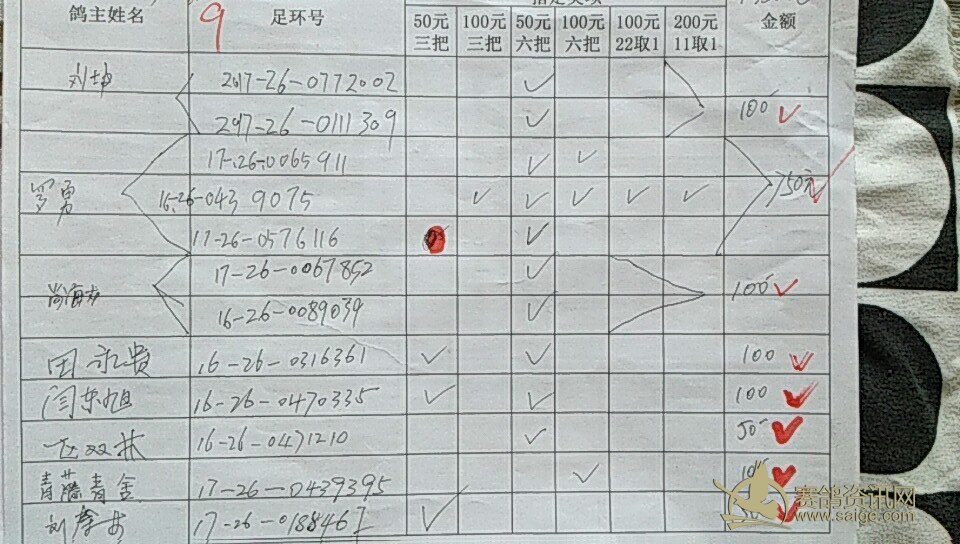 鸽主姓名 9 足环号 指定奖项 金额
50元三把 100元三把 50元六把 100元六把 100元22取1 200元11取1
刘坤 2017-26-0772002 ✓
2017-26-0111309 ✓ 100 ✓
17-26-0065911 ✓ ✓
罗勇 16-26-0439075 ✓ ✓ ✓ ✓ ✓ 750元 ✓
17-26-0576116 ✓
17-26-0067852 ✓
尚海 100 ✓
16-26-0089039 ✓
田永贵 16-26-0316361 ✓ ✓ 100 ✓
闫东旭 16-26-0470335 ✓ ✓ 100 ✓
双林 16-26-0471210 ✓ 50 ✓
青藤青舍 17-26-0439395 ✓ 100 ✓
刘 17-26-0188461 ✓ ✓
赛鸽资讯网
www.saige.com